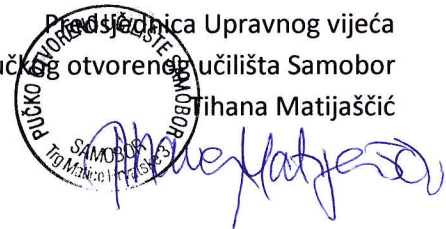 Predsjednica Upravnog vijeća
učkog otvorenog učilišta Samobor
Tihana Matijaščić
PUČKO OTVORENO UČILIŠTE SAMOBOR
SAMOBOR
Trg Matice Hrvatske 3